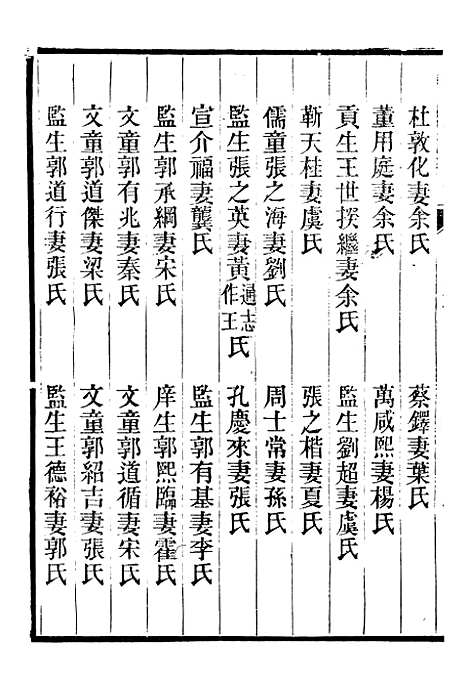 杜敦化妻余氏
蔡鐸妻葉氏
董用庭妻余氏
萬咸熙妻楊氏
貢生王世揆繼妻余氏
監生劉超妻虞氏
靳天桂妻虞氏
張之楷妻夏氏
儒童張之海妻劉氏
周士常妻孫氏
監生張之英妻黃通志作王氏
孔慶來妻張氏
宣介福妻龔氏
監生郭有基妻李氏
監生郭承綱妻宋氏
庠生郭熙臨妻霍氏
文童郭有兆妻秦氏
文童郭道循妻宋氏
文童郭道傑妻梁氏
文童郭紹吉妻張氏
監生郭道行妻張氏
監生王德裕妻郭氏